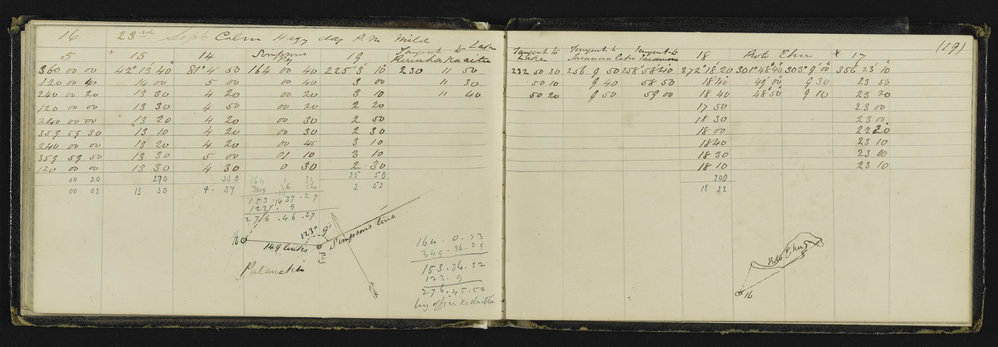 16 23rd Sept Calm Hazy day P.M. Mild
5 + 15 14 Simpsons Peg 19 Tangent to Lake
360 00 00 42° 13 40 81° 4 50 164 00 40 225° 3 10 230 11 50
120 00 40 14 00 5 00 00 40 3 00 11 30
240 00 20 13 30 4 20 00 20 3 10 11 40
120 00 00 13 30 4 50 00 20 2 20
240 00 00 13 20 4 20 00 30 2 50
359 59 30 13 10 4 20 00 30 2 30
240 00 00 13 20 4 20 00 45 3 10
359 59 50 13 30 5 00 01 10 3 10
120 00 00 13 30 4 30 0 30 2 30
00 20 270 25 50
00 02 13 30 4. 37 2. 52
276 . 46 . 27
16 149 links 123° 9' Peg Simpsons line
164 . 0 . 33
349 . 36 . 29
153 . 36 . 52
123 . 9
276 . 45 . 52
by office reduction
(19)
Tangent to Lake Tangent to Tangent to 18 Roto Ehu + 17
232 50 30 256 9 50 258° 58' 00 272° 18 20 301° 48 40 303° 9 00 356 23 10
50 10 9 40 58 50 18 20 49 00 9 30 23 50
50 20 9 50 59 00 18 40 48 50 9 10 23 20
17 50 23 00
18 30 23 00
18 00 22 20
18 40 23 10
18 30 23 00
18 10 23 10
200
18 22
Roto Ehu
16